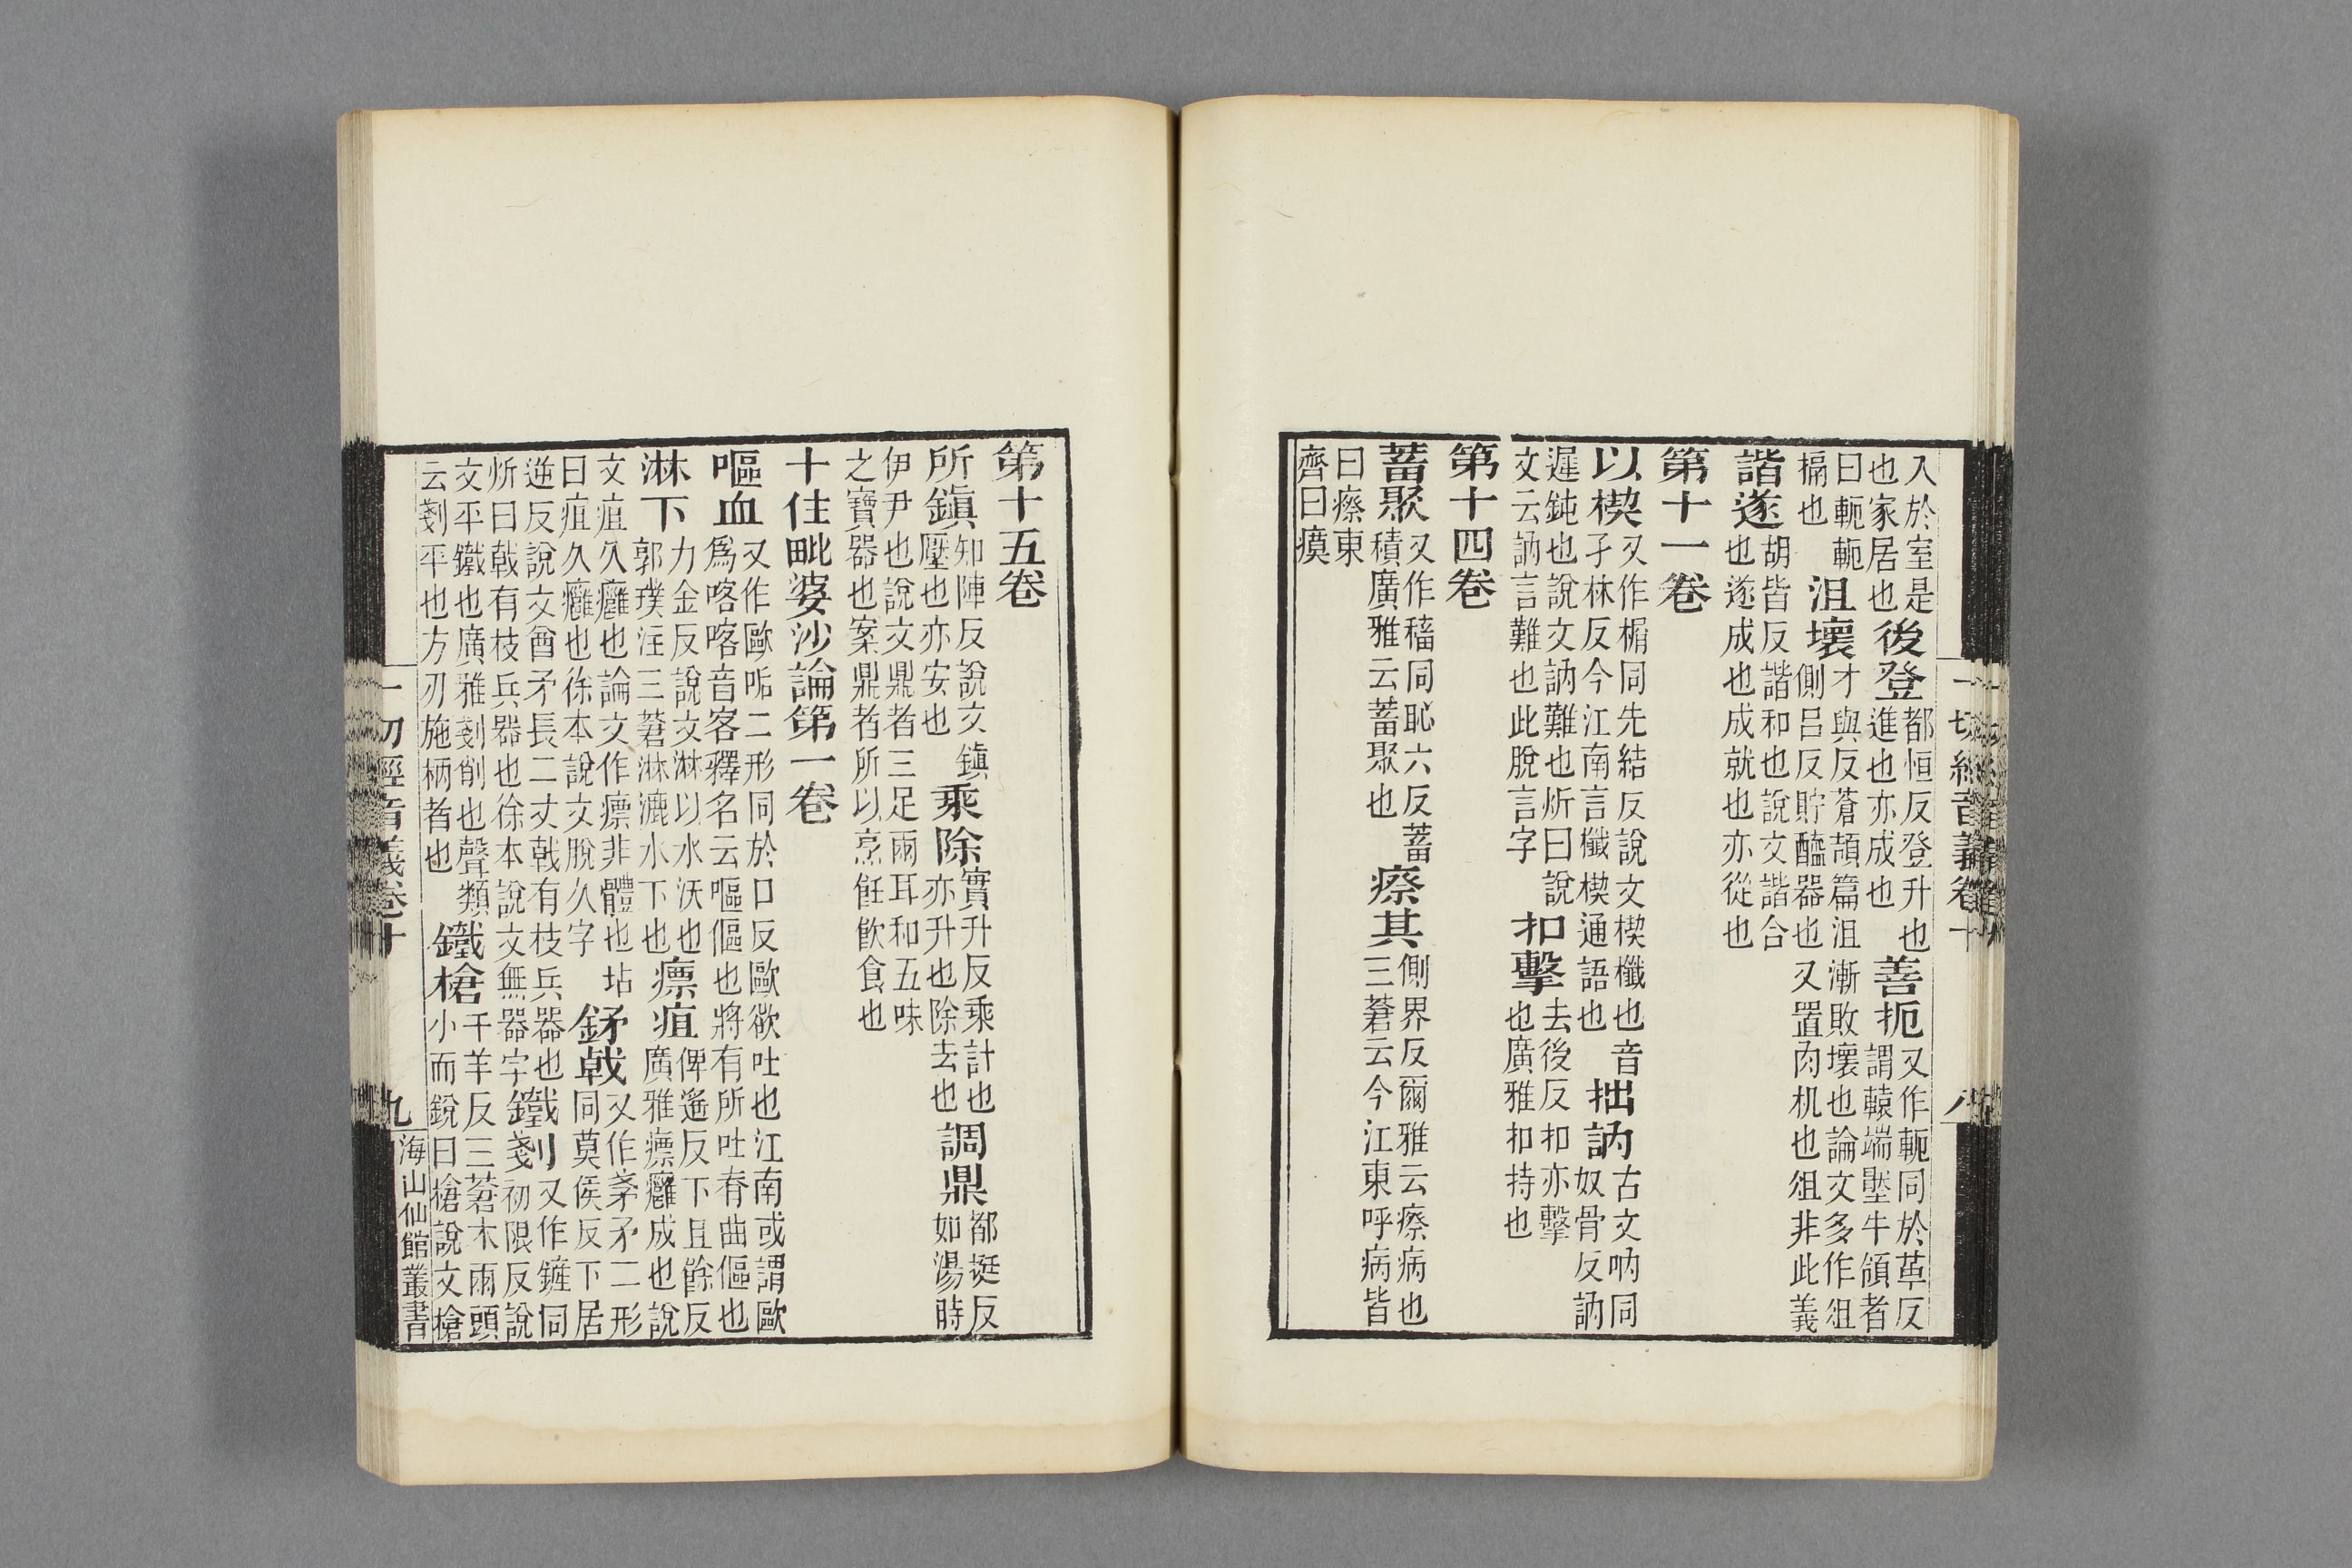 入於室是也家居也後登都恒反登升也進也亦成也善扼又作軛同於革反謂轅端壓牛領者
曰軛軛搹也沮壞才與反蒼頡篇沮漸敗壞也論文多作俎側呂反貯醯器也又置肉机也俎非此義
諧遂胡皆反諧和也說文諧合也遂成也成就也亦從也
第十一卷
以楔又作楣同先結反說文楔櫼也音孑林反今江南言櫼楔通語也拙訥古文吶同奴骨反訥
遲鈍也說文訥難也炘曰說文云訥言難也此脫言字扣擊去後反扣亦擊也廣雅扣持也
第十四卷
蓄聚又作稸同恥六反蓄積廣雅云蓄聚也瘵其側界反爾雅云瘵病也三蒼云今江東呼病皆
曰瘵東齊曰瘼
一切經音義卷十 八
第十五卷
所鎮知陣反說文鎮壓也亦安也乘除實升反乘計也亦升也除去也調鼎都挺反如湯時
伊尹也說文鼎者三足兩耳和五味之寶器也案鼎者所以烹飪飲食也
十住毗婆沙論第一卷
嘔血又作歐㖃二形同於口反歐欲吐也江南或謂歐爲喀喀音客釋名云嘔傴也將有所吐脊曲傴也
淋下力金反說文淋以水沃也郭璞注三蒼淋漉水下也瘭疽俾遙反下且餘反廣雅瘭癰成也說
文疽久癰也論文作瘭非體也坫曰疽久癰也徐本說文脫久字鉾戟又作矛二形同莫侯反下居
逆反說文酋矛長二丈戟有枝兵器也炘曰戟有枝兵器也徐本說文無器字鐵剗又作鏟同初限反說
文平鐵也廣雅剗削也聲類云剗平也方刃施柄者也鐵槍千羊反三蒼木兩頭小而銳曰槍說文槍
一切經音義卷十 九 海山仙館叢書